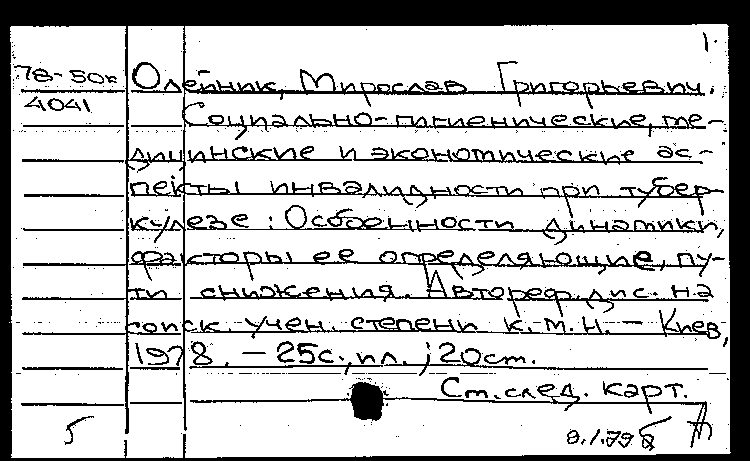 1.
78-50к Олейник, Мирослав Григорьевич.
4041 Социально-гигиенические, ме-
дицинские и экономические ас-
пекты инвалидности при тубер-
кулезе: Особенности динамики,
факторы ее определяющие, пу-
ти снижения. Автореф. дис. на
соиск. учен. степени к.м.н. - Киев,
1978. - 25с., ил.; 20см.
См. след. карт.
5